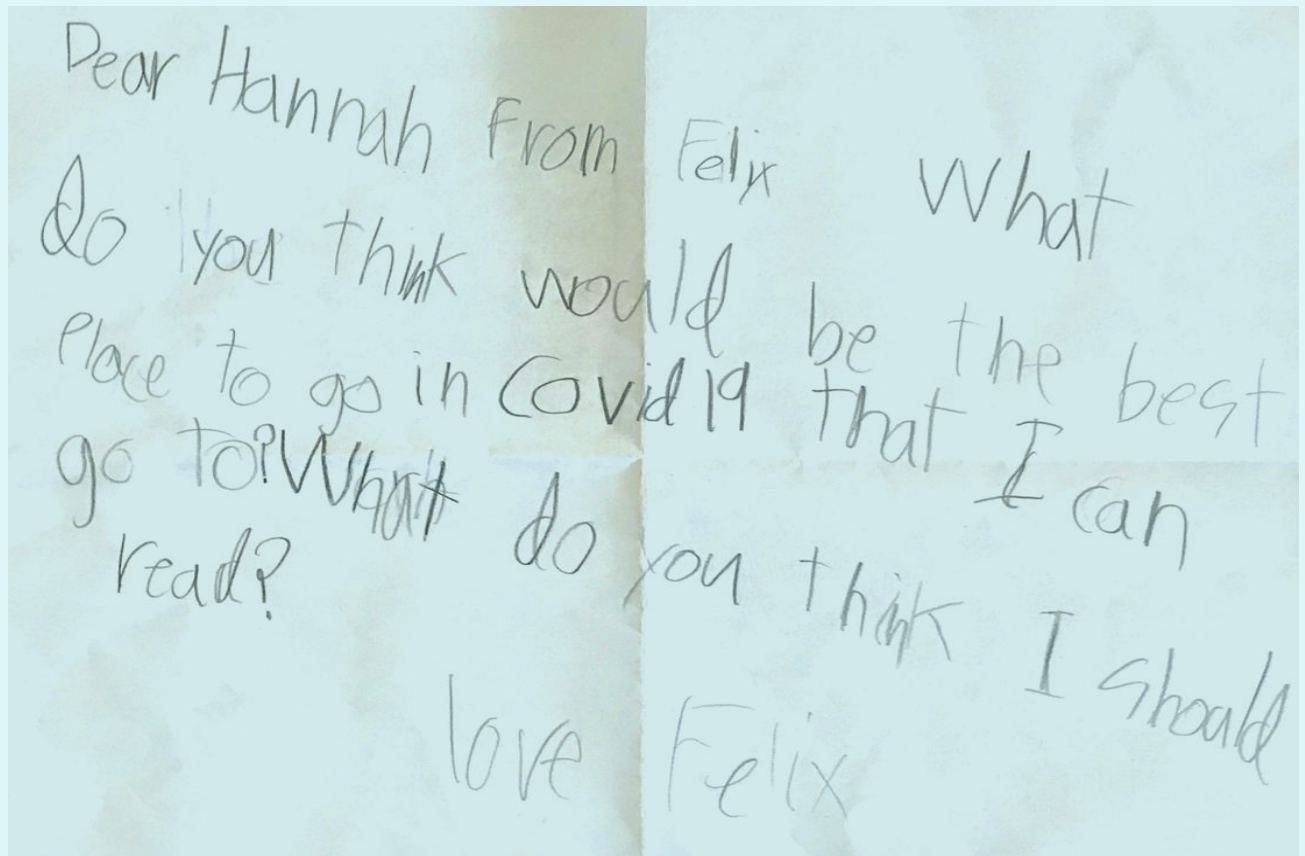 Dear Hannah From Felix What
do you think would be the best
Place to go in Covid 19 that I can
go to? What do you think I should
read?
love Felix